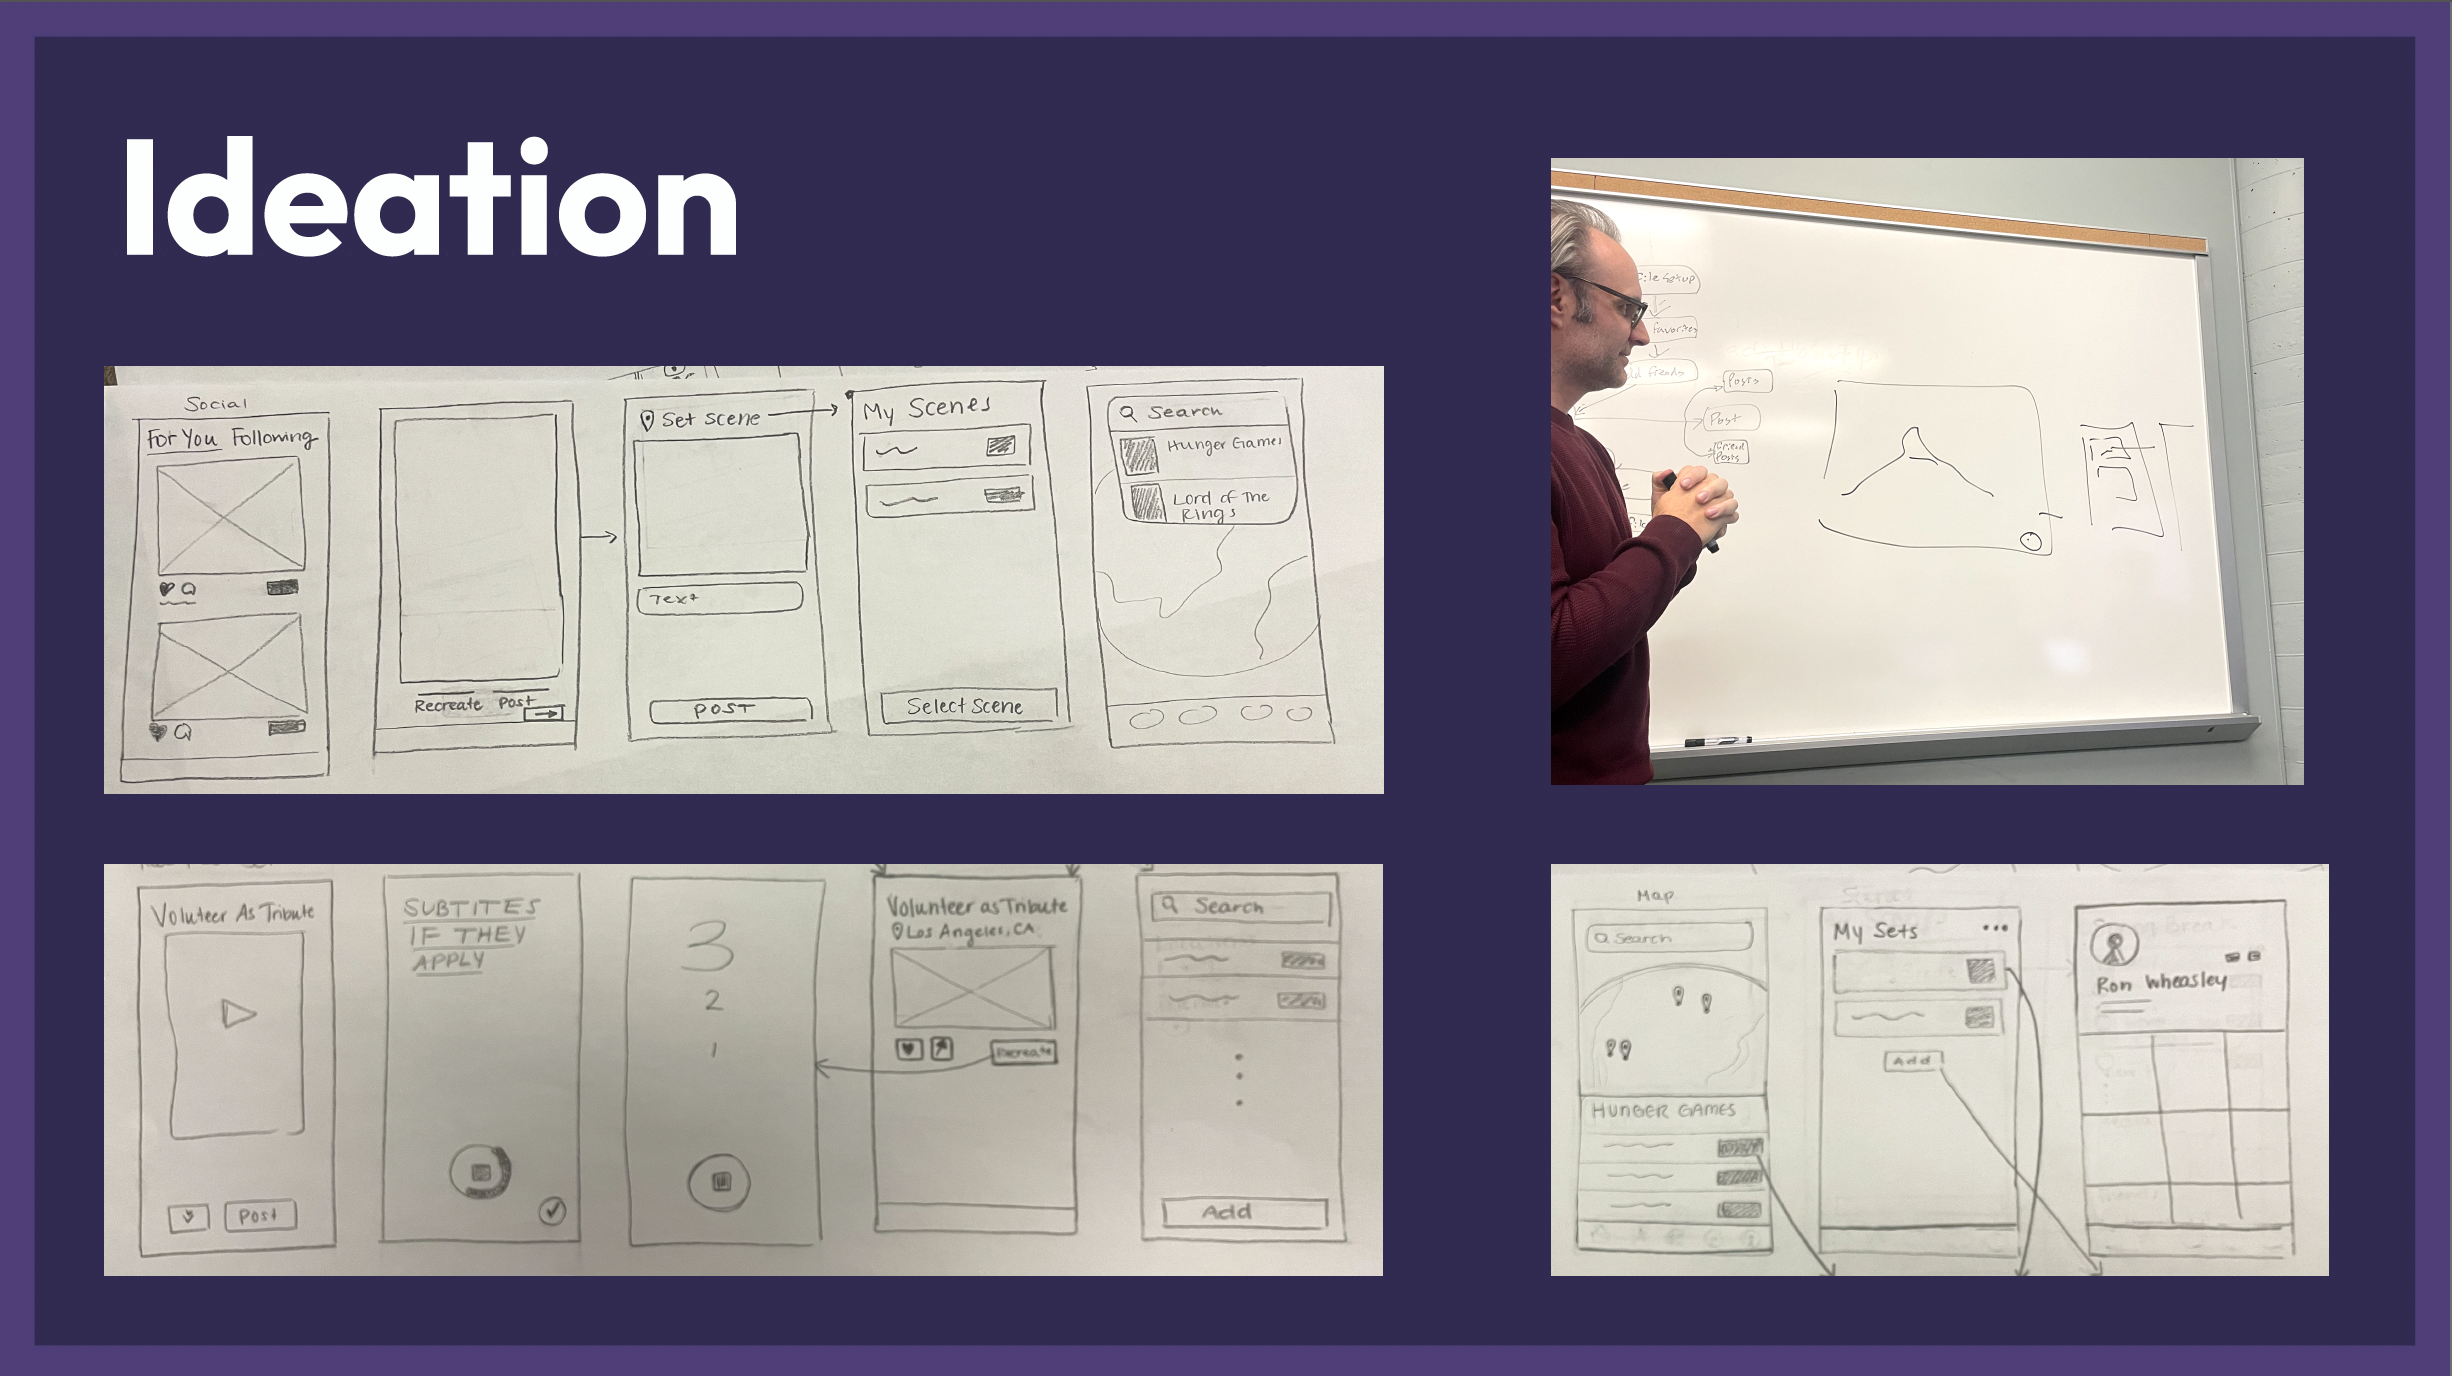 Ideation
Social
For You Following
Recreate Post
Set Scene
Text
POST
My Scenes
Select Scene
Search
Hunger Games
Lord of The
Rings
file Setup
favorites
friends
Posts
Post
Friend
Posts
Voluteer As Tribute
Post
SUBTITES
IF THEY
APPLY
3
2
1
Volunteer as Tribute
Los Angeles, CA
Recreate
Search
Add
Map
Search
HUNGER GAMES
My Sets
Add
Ron Wheasley